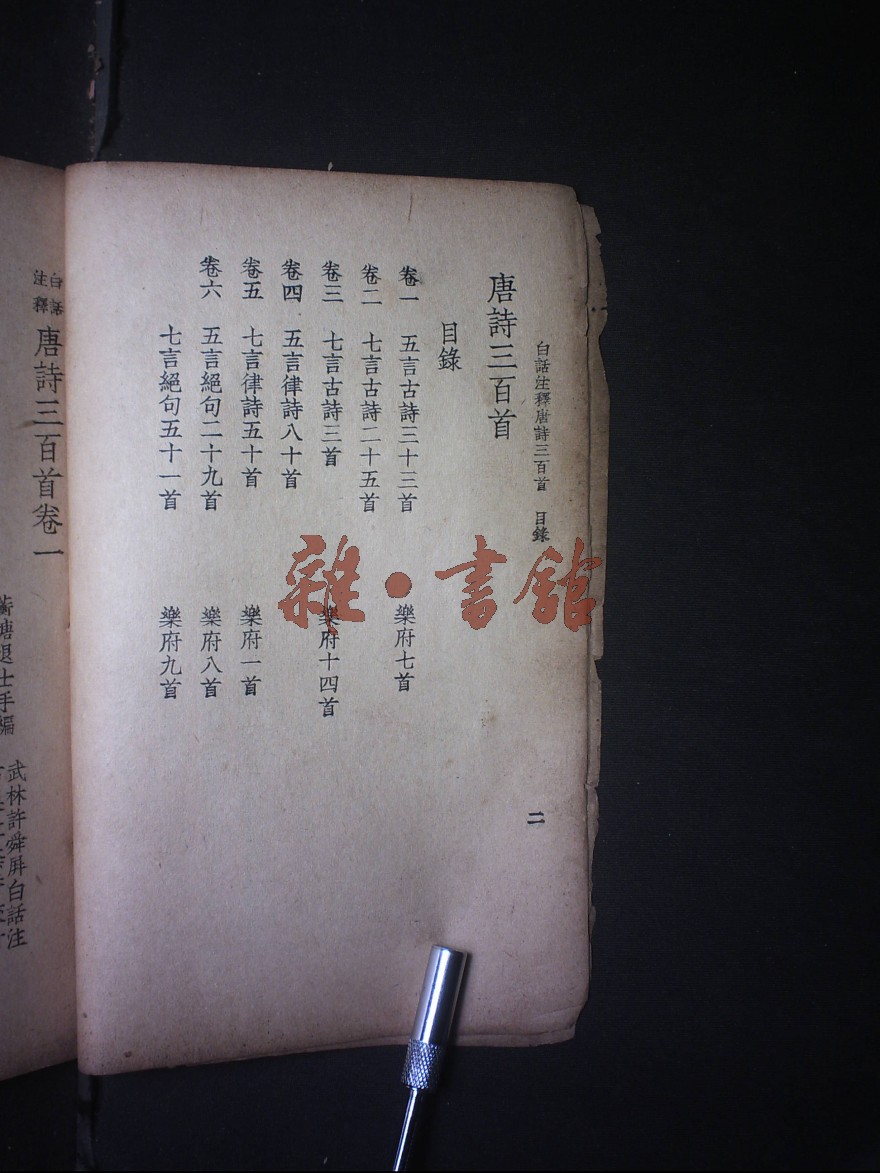 白話注釋唐詩三百首 目錄
二
唐詩三百首
目錄
卷一 五言古詩三十三首 樂府七首
卷二 七言古詩二十五首
卷三 七言古詩三首 樂府十四首
卷四 五言律詩八十首
卷五 七言律詩五十首 樂府一首
卷六 五言絕句二十九首 樂府八首
七言絕句五十一首 樂府九首
白話注釋 唐詩三百首卷一
蘅塘退士手編
武林許舜屏白話注
雜·書館